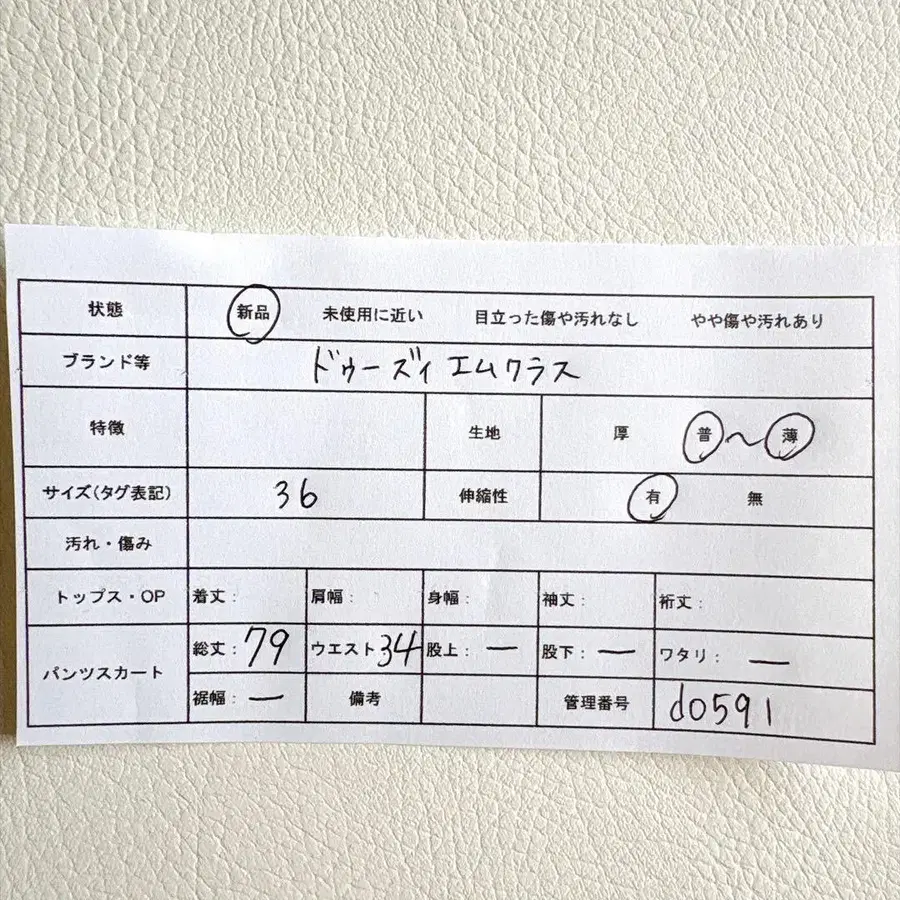 状態 新品 未使用に近い 目立った傷や汚れなし やや傷や汚れあり
ブランド等 ドゥーズィエムクラス
特徴 生地 厚 普～薄
サイズ(タグ表記) 36 伸縮性 有 無
汚れ・傷み
トップス・OP 着丈: 肩幅: 身幅: 袖丈: 裄丈:
パンツスカート 総丈:79 ウエスト:34 股上:ー 股下:ー ワタリ:ー
裾幅:ー 備考 管理番号 d0591